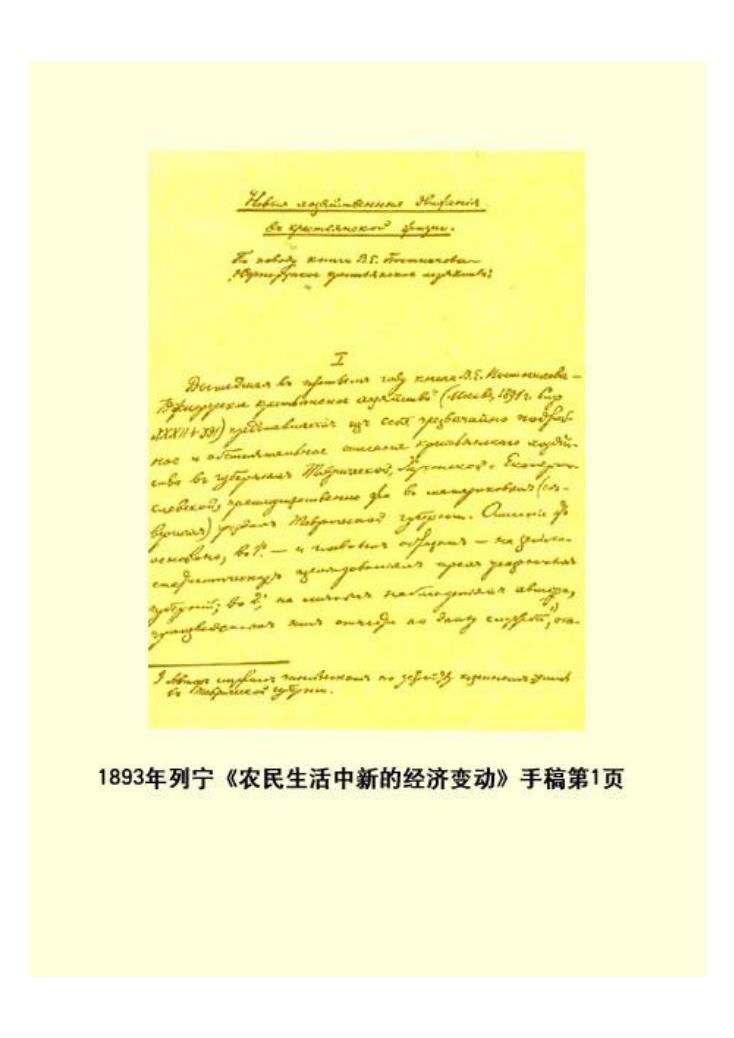 Новыя хозяйственныя движенія
въ крестьянской жизни.
По поводу книги В.Е. Постникова—
„Южно-русское крестьянское хозяйство“.
I
Вышедшая въ прошломъ году книга В.Е. Постникова—
„Южно-русское крестьянское хозяйство“ (Москва, 1891 г. Стр.
XXXII + 391) представляетъ изъ себя чрезвычайно подроб-
ное и обстоятельное описаніе крестьянскаго хозяй-
ства въ губерніяхъ Таврической, Херсонской и Екатерино-
славской, преимущественно же въ материковыхъ (сѣ-
верныхъ) уѣздахъ Таврической губерніи. Описаніе это
основано, во 1хъ — и главнымъ образомъ — на земско-
статистическихъ изслѣдованіяхъ трехъ указанныхъ
губерній; во 2хъ, на личныхъ наблюденіяхъ автора,
произведенныхъ имъ отчасти по долгу службы¹⁾, от-
¹⁾ Авторъ служилъ чиновникомъ по устройству казенныхъ земель
въ Таврической губерніи.
1893年列宁《农民生活中新的经济变动》手稿第1页